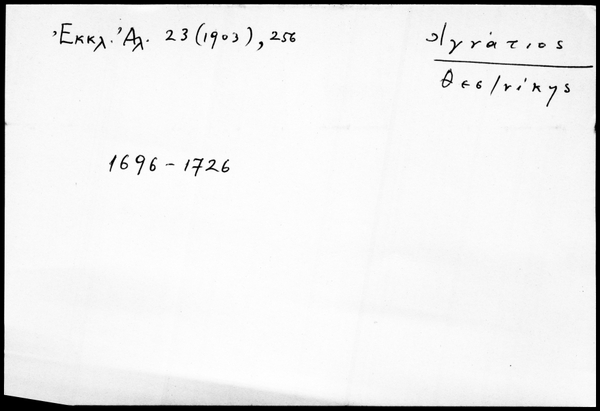 Ἐκκλ. Ἀλ. 23 (1903), 256
Ἰγνάτιος
Θεσ/νίκης
1696 - 1726